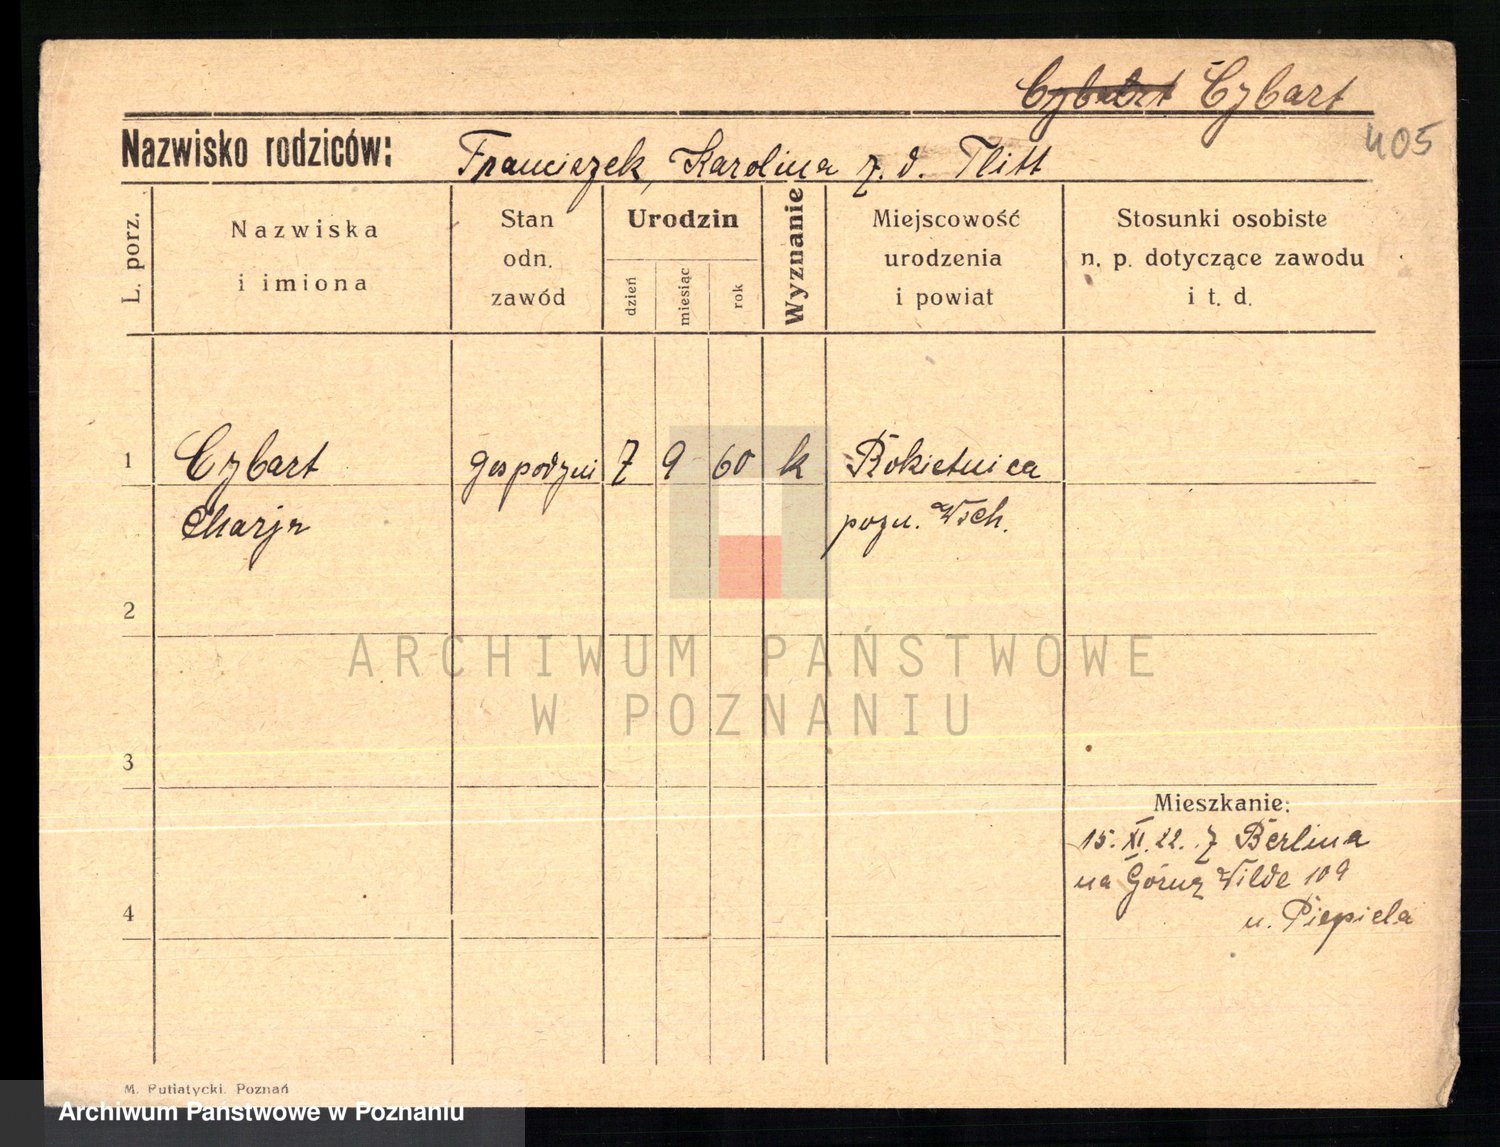 Cybart
405
Nazwisko rodziców: Franciszek, Karolina z. d. Tlitt
L. porz.
Nazwiska i imiona
Stan odn. zawód
Urodzin
dzień
miesiąc
rok
Wyznanie
Miejscowość urodzenia i powiat
Stosunki osobiste n. p. dotyczące zawodu i t. d.
1 Cybart gospodyni 7 9 60 k Rokietnica
pozn. Wsch.
2
ARCHIWUM PAŃSTWOWE
W POZNANIU
3
Mieszkanie:
15. XI. 22. z Berlina
na Górną Wildę 109
4
u. Piepiela
M. Putiatycki. Poznań
Archiwum Państwowe w Poznaniu